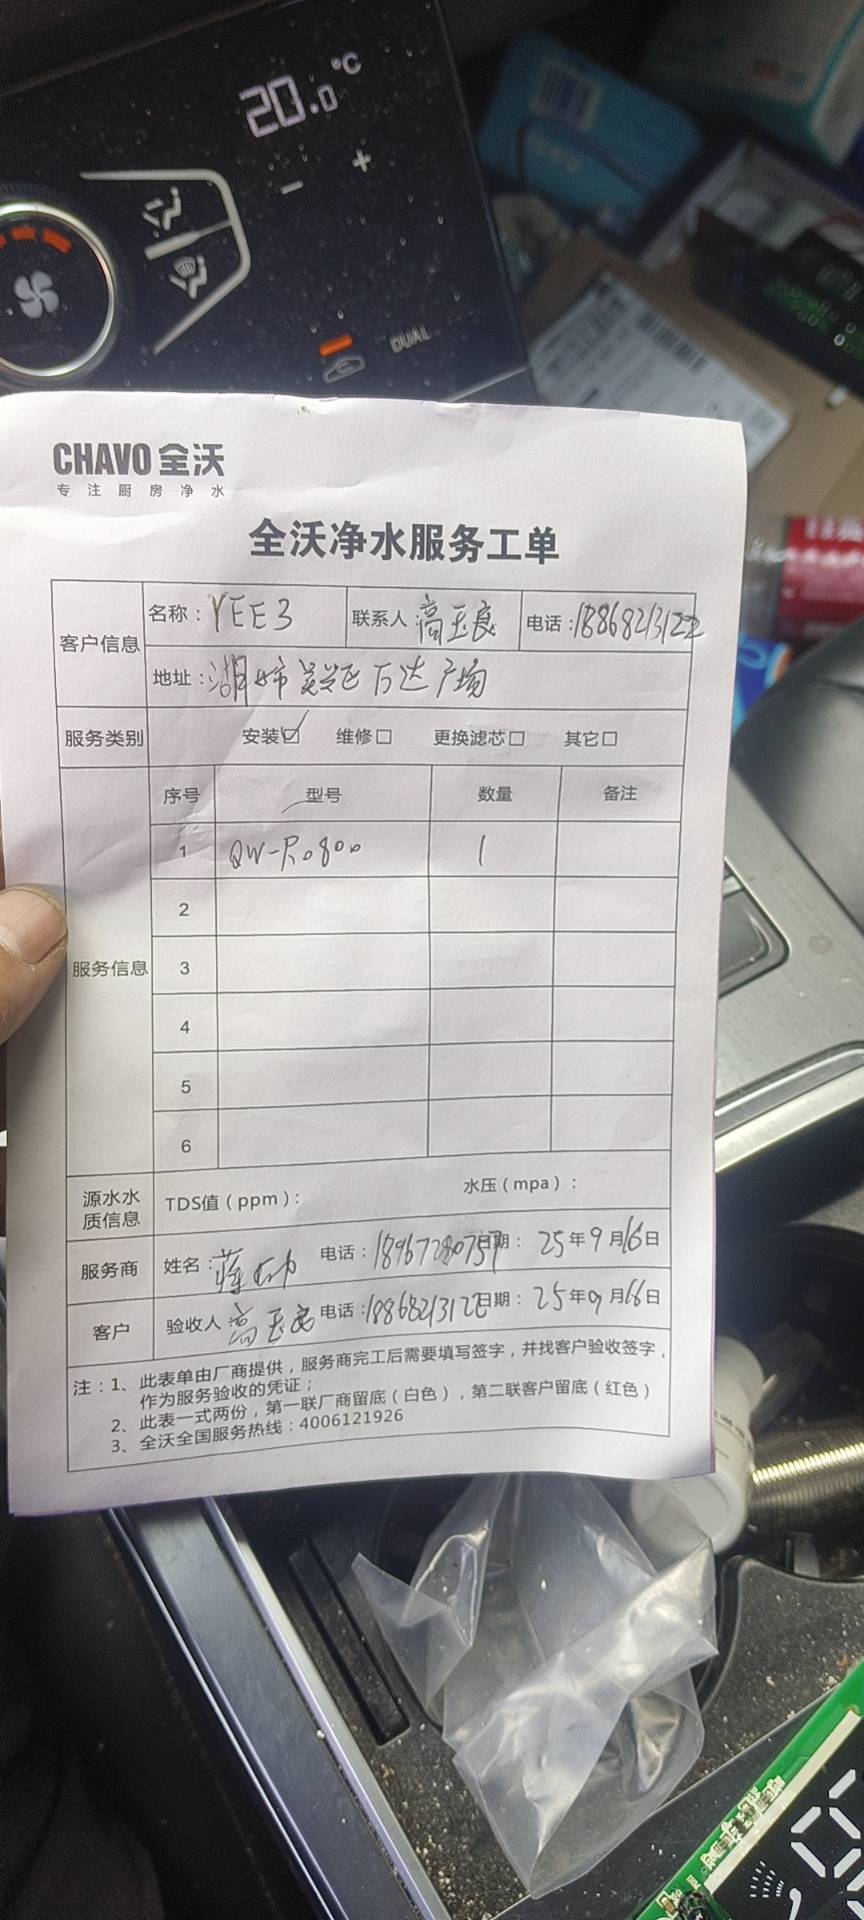 20.0 °C
+
−
DUAL
CHAVO 全沃
专注厨房净水
全沃净水服务工单
客户信息 名称：YEE3 联系人 高玉良 电话：18868213122
地址：湖州市吴兴区万达广场
服务类别 安装☑ 维修□ 更换滤芯□ 其它□
服务信息
序号 型号 数量 备注
1 QW-Ro800 1
2
3
4
5
6
源水水质信息 TDS值（ppm）： 水压（mpa）：
服务商 姓名：蒋 电话：18967280757 日期：25年9月16日
客户 验收人 高玉良 电话：18868213122 日期：25年9月16日
注：1、此表单由厂商提供，服务商完工后需要填写签字，并找客户验收签字，
作为服务验收的凭证；
2、此表一式两份，第一联厂商留底（白色），第二联客户留底（红色）
3、全沃全国服务热线：4006121926